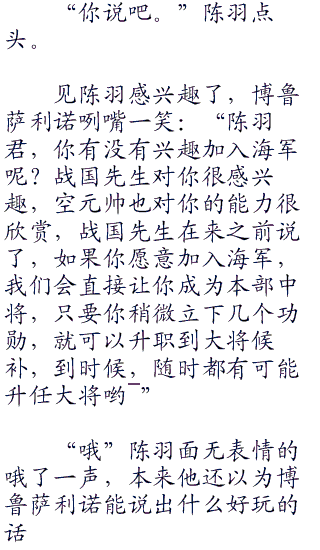 “你说吧。”陈羽点
头。
见陈羽感兴趣了，博鲁
萨利诺咧嘴一笑：“陈羽
君，你有没有兴趣加入海军
呢？战国先生对你很感兴
趣，空元帅也对你的能力很
欣赏，战国先生在来之前说
了，如果你愿意加入海军，
我们会直接让你成为本部中
将，只要你稍微立下几个功
勋，就可以升职到大将候
补，到时候，随时都有可能
升任大将哟¯”
“哦”陈羽面无表情的
哦了一声，本来他还以为博
鲁萨利诺能说出什么好玩的
话